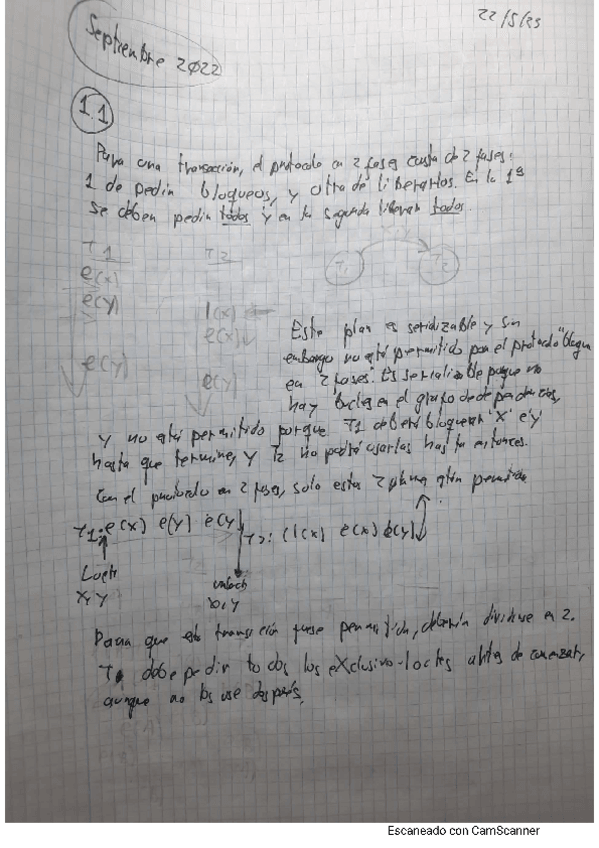 22/5/23
Septiembre 2022
1.1
Para una transacción, el protocolo en 2 fases consta de 2 fases:
1 de pedir bloqueos, y otra de liberarlos. En la 1ª
se deben pedir todos y en la segunda liberar todos.
T1 T2
e(x)
e(y) l(x)
e(x)
e(y) e(y)
T1 T2
Este plan es serializable y sin
embargo no está permitido por el protocolo "bloqueo
en 2 fases". Es serializable porque no
hay bucles en el grafo de dependencias,
y no está permitido porque T1 deberá bloquear 'X' e 'y'
hasta que termine, y T2 no podrá usarlas hasta entonces.
Con el protocolo en 2 fases, solo estos 2 planes están
T1: e(x) e(y) e(y) T2: (l(x) e(x) e(y))
Lock unlock
x, y x, y
Para que esta transición fuese permitida, debería dividirse en 2.
T1 debe pedir todos los exclusivo-locks antes de comenzar,
aunque no los use después.
Escaneado con CamScanner